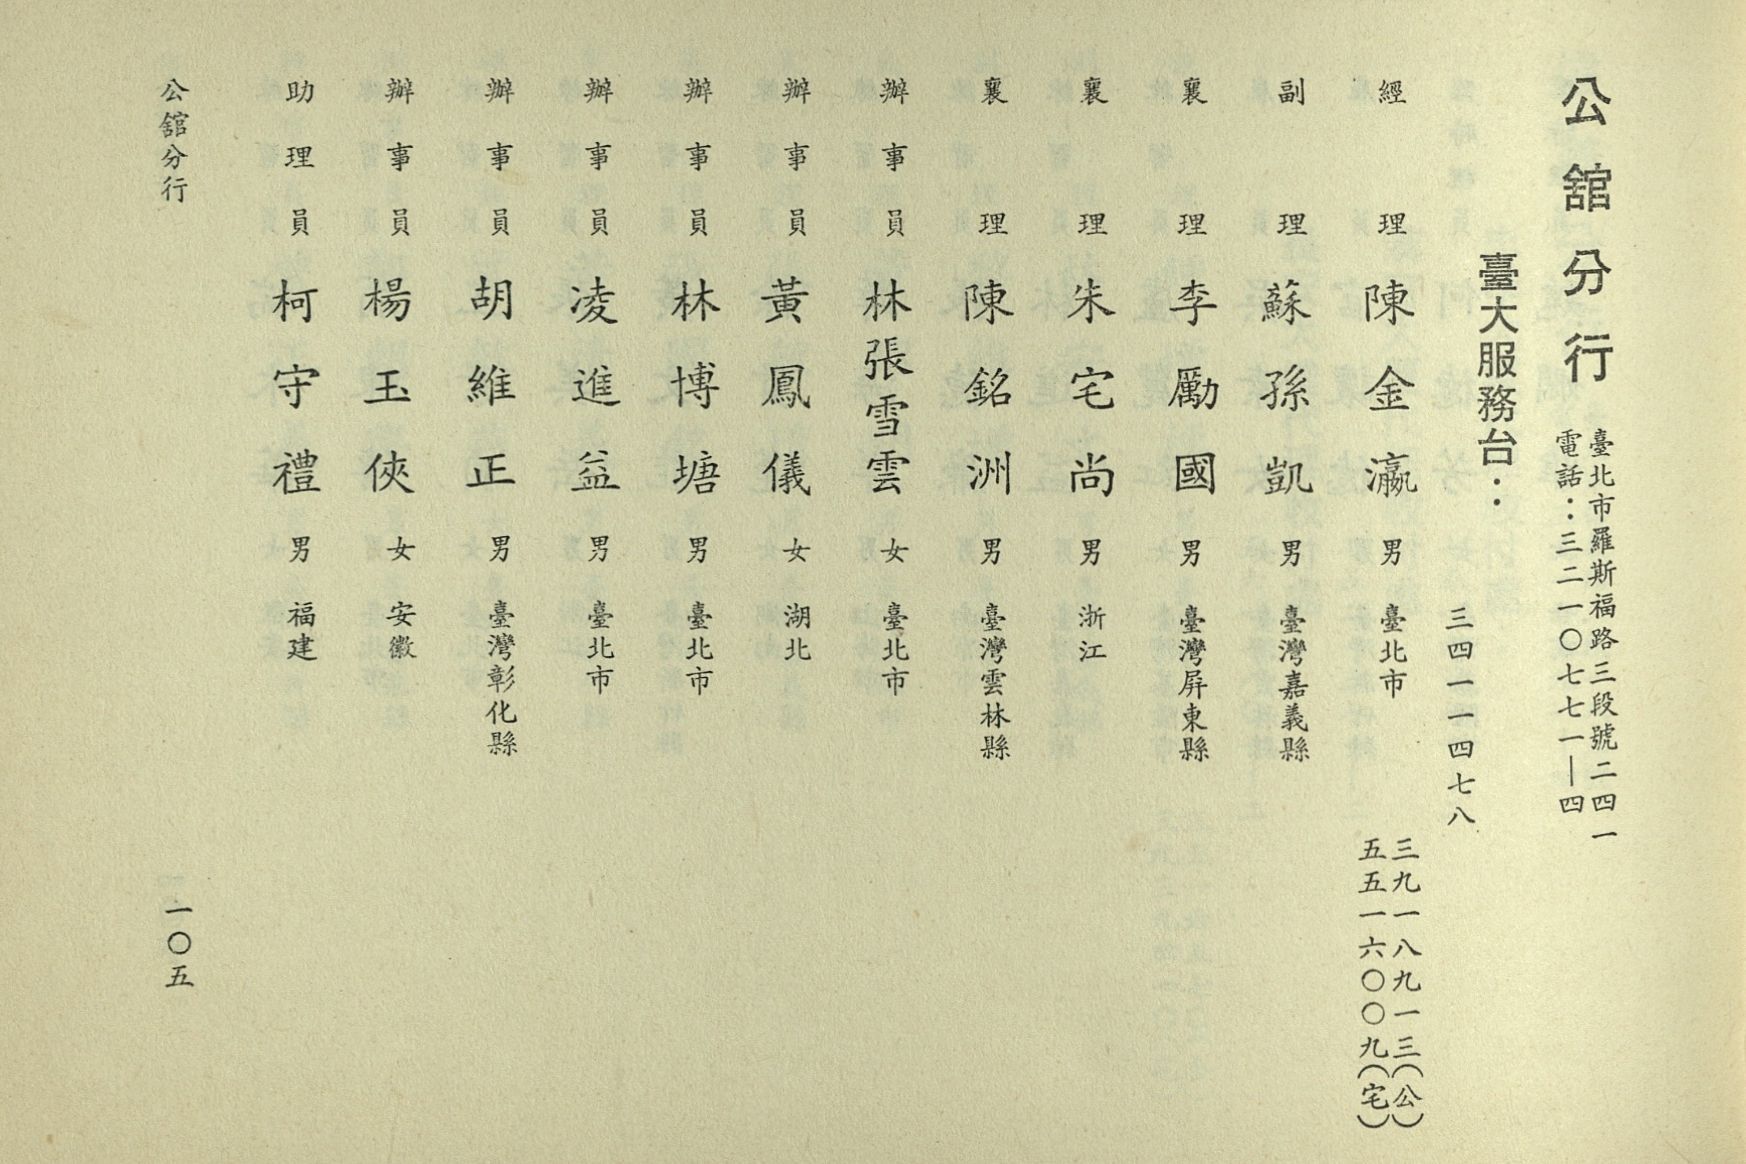 公舘分行
臺北市羅斯福路三段號二四一
電話：三二一〇七七一—四
臺大服務台：
三四一一四七八
經理 陳金瀛 男 臺北市
三九一八九一三（公）
五五一六〇〇九（宅）
副理 蘇孫凱 男 臺灣嘉義縣
襄理 李勵國 男 臺灣屏東縣
襄理 朱宅尚 男 浙江
襄理 陳銘洲 男 臺灣雲林縣
辦事員 林張雪雲 女 臺北市
辦事員 黃鳳儀 女 湖北
辦事員 林博塘 男 臺北市
辦事員 凌進益 男 臺北市
辦事員 胡維正 男 臺灣彰化縣
辦事員 楊玉俠 女 安徽
助理員 柯守禮 男 福建
公舘分行
一〇五